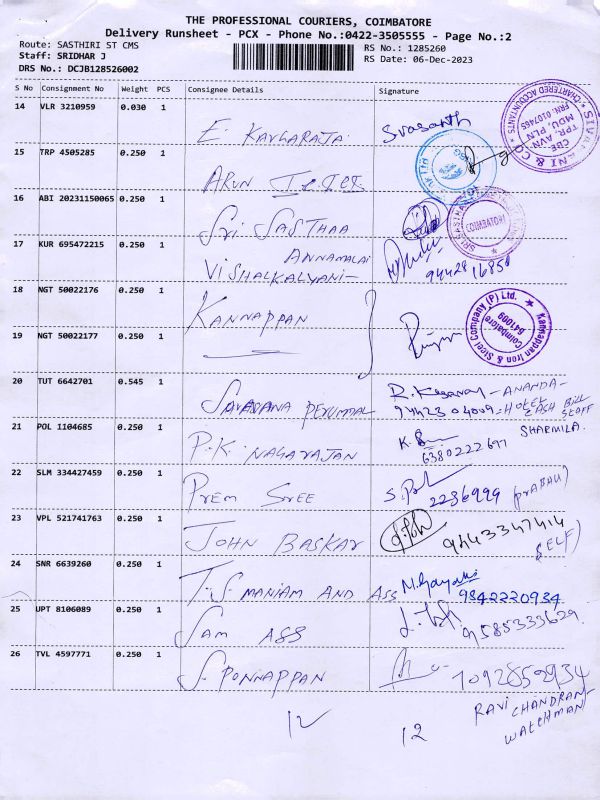 THE PROFESSIONAL COURIERS, COIMBATORE
Delivery Runsheet - PCX - Phone No.:0422-3505555 - Page No.:2
Route: SASTHIRI ST CMS
RS No.: 1285260
Staff: SRIDHAR J
RS Date: 06-Dec-2023
DRS No.: DCJB128526002
S No Consignment No Weight PCS Consignee Details Signature
14 VLR 3210959 0.030 1
E. KAVYARAJA Srasanth
15 TRP 4505285 0.250 1
ARUN
16 ABI 20231150065 0.250 1
SRI SASTHAA
17 KUR 695472215 0.250 1
ANNAMALAI
VISHALKALYANI
18 NGT 50022176 0.250 1
KANNAPPAN
Kannappan Iron & Steel Company (P) Ltd.
Coimbatore
641009
19 NGT 50022177 0.250 1
20 TUT 6642701 0.545 1
SARAVANA PERUMMAL R. Kesavaraj - ANANDA -
9442304009 - HOTEL CASH BILL STAFF
21 POL 1104685 0.250 1
SHARMILA.
P.K. NAGARAJAN
6380222697
22 SLM 334427459 0.250 1
PREM SREE 2236999 (PRABHU)
23 VPL 521741763 0.250 1
JOHN BASKAR 9443347414
(SELF)
24 SNR 6639260 0.250 1
T.S. MANIAM AND ASS
9842220934
25 UPT 8106089 0.250 1
SAM ASS
9585333629
26 TVL 4597771 0.250 1
S. PONNAPPAN
RAVI CHANDRAN
WATCHMAN
12
12